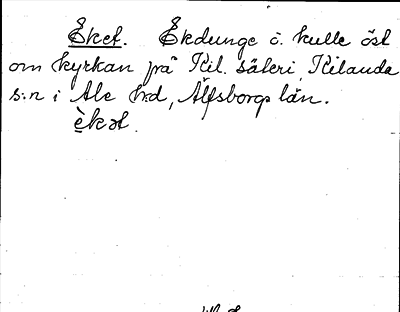 Eket. Ekdunge ö. kulle öst
om kyrkan på Kil. säteri, Kilanda
s:n i Ale h:d, Älfsborgs län.
ὲkət.